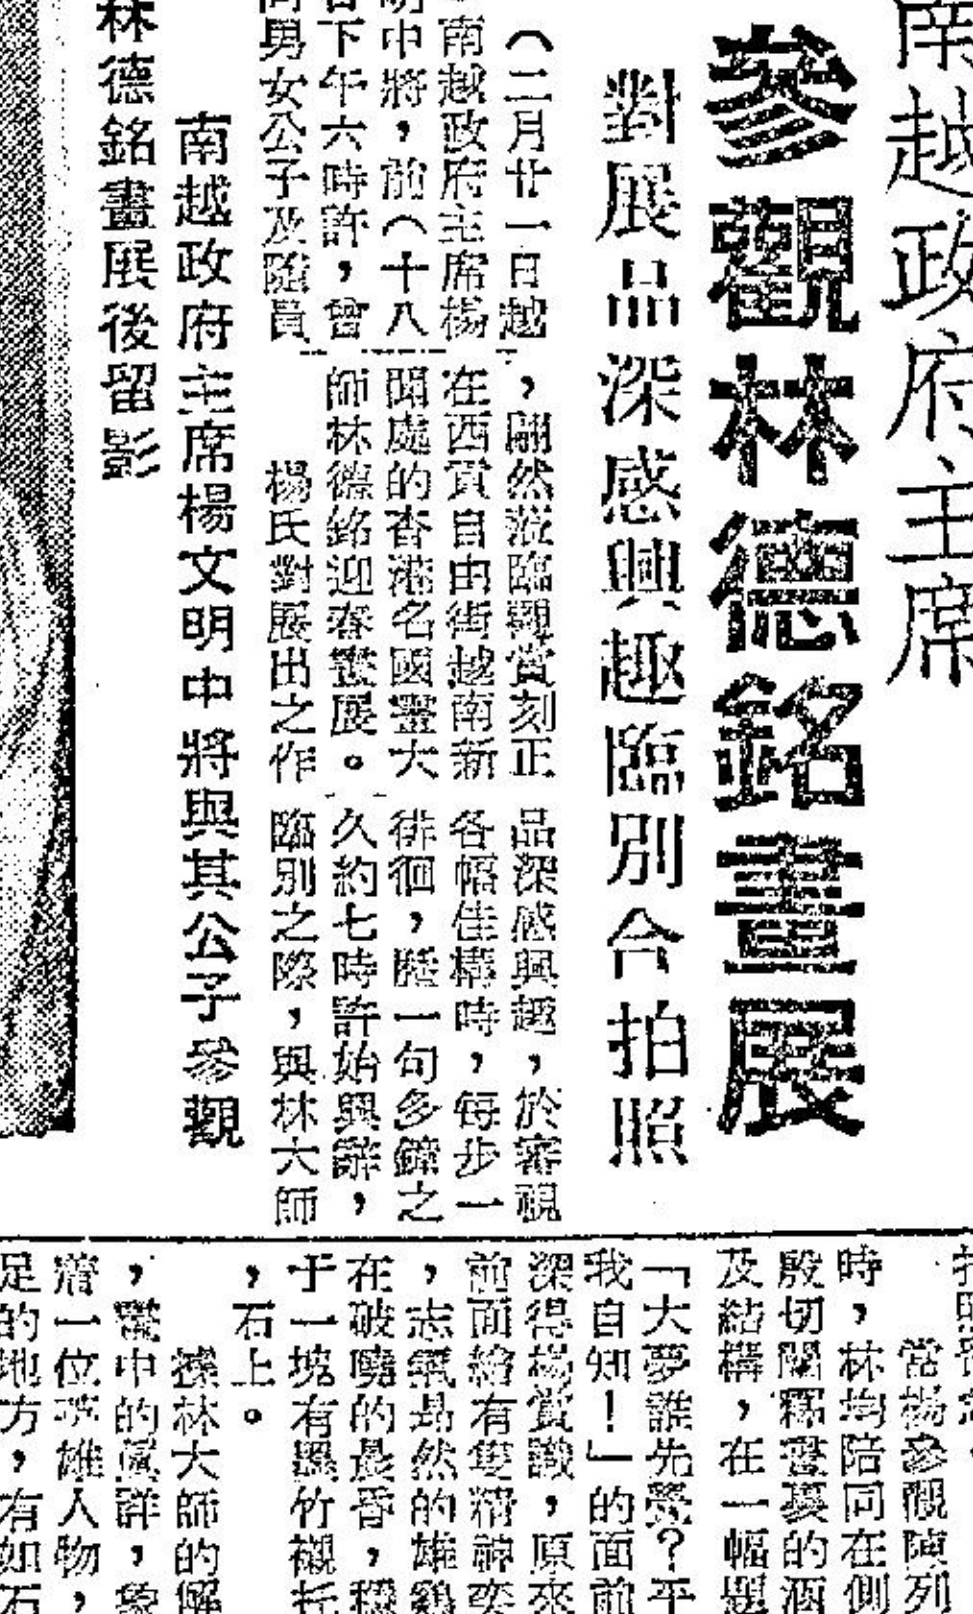 南越政府主席
參觀林德銘畫展
對展品深感興趣臨別合拍照
（二月廿一日越
南越政府主席楊
明中將，前（十八
下午六時許，曾
男女公子及隨員
，翩然蒞臨觀賞刻正
在西貢自由街越南新
聞處的香港名國畫大
師林德銘迎春畫展。
楊氏對展出之作
品深感興趣，於審視
各幅佳構時，每步一
徘徊，歷一句多鐘之
久約七時許始興辭，
臨別之際，與林大師
南越政府主席楊文明中將與其公子參觀
林德銘畫展後留影
當楊參觀陳列
時，林均陪同在側
殷切闡釋畫裏的涵
及結構，在一幅題
「大夢誰先覺？平
我自知！」的面前
深得楊賞識，原來
前面繪有隻精神奕
，志氣昂然的雄鷄
在破曉的晨昏，
于一塊有墨竹襯托
，石上。
據林大師的解
，畫中的雞，象
一位英雄人物，
足的地方，有如石